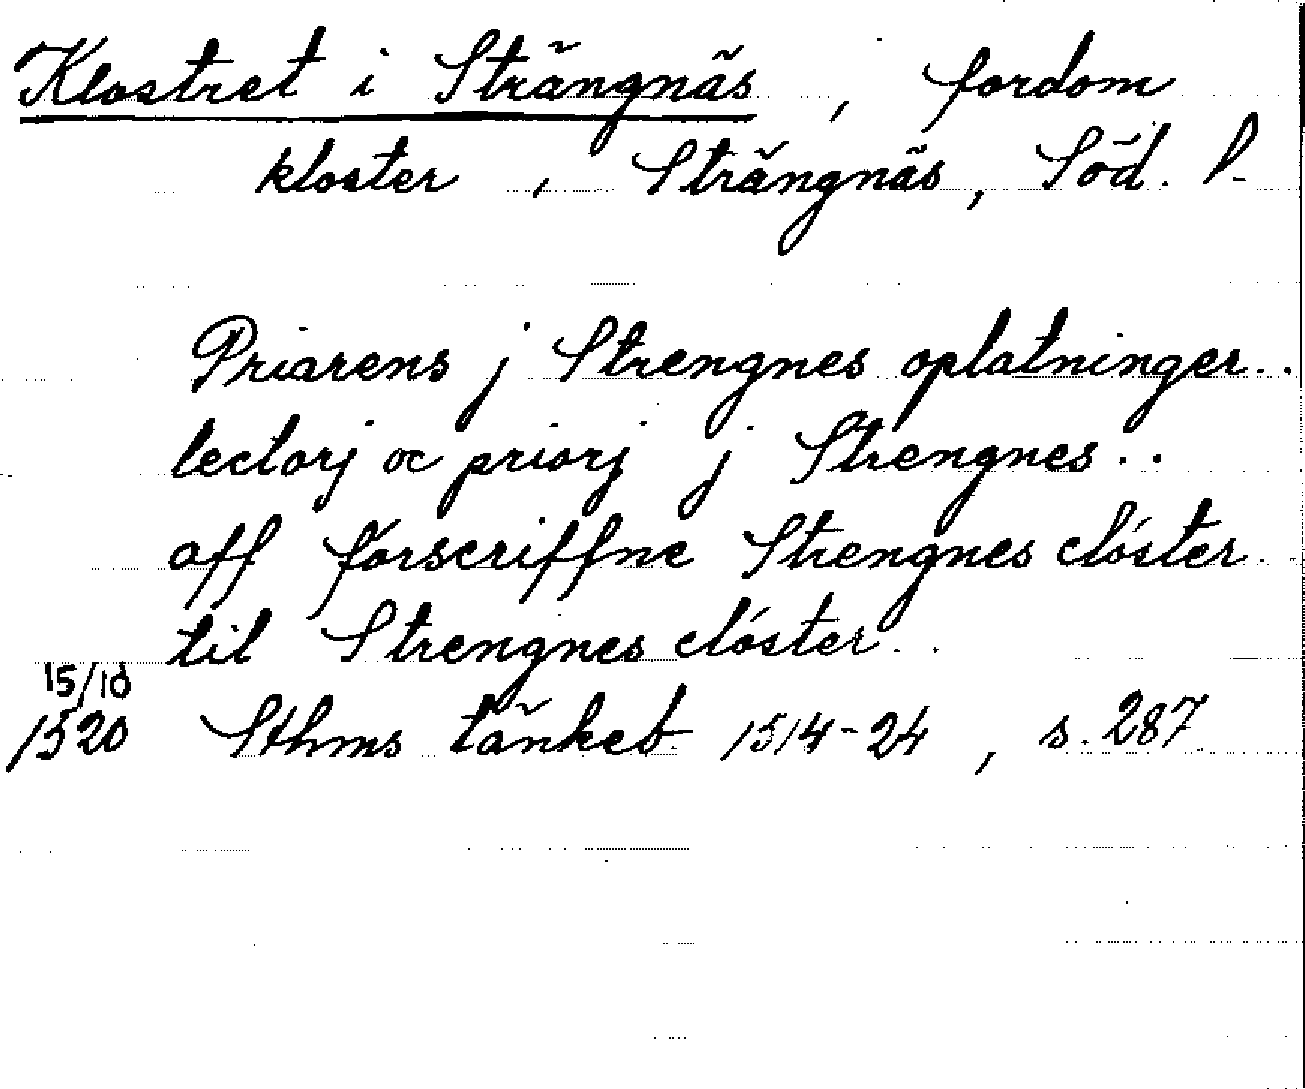 Klostret i Strängnäs, fordom
kloster, Strängnäs, Söd. l.
Priorens j Strengnes oplatninger..
lectorj oc priorj j Strengnes..
aff forscriffne Strengnes clóster..
til Strengnes clóster..
15/10
1520 Sthms tänkeb 1514-24, s. 287